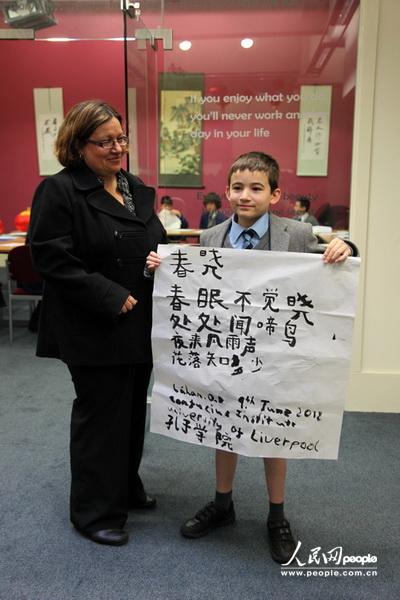 if you enjoy what you
you'll never work an
day in your life
春晓
春眠不觉晓
处处闻啼鸟
夜来风雨声
花落知多少
9th June 2012
confucius Institute
university of Liverpool
孔子学院
人民网people
www.people.com.cn